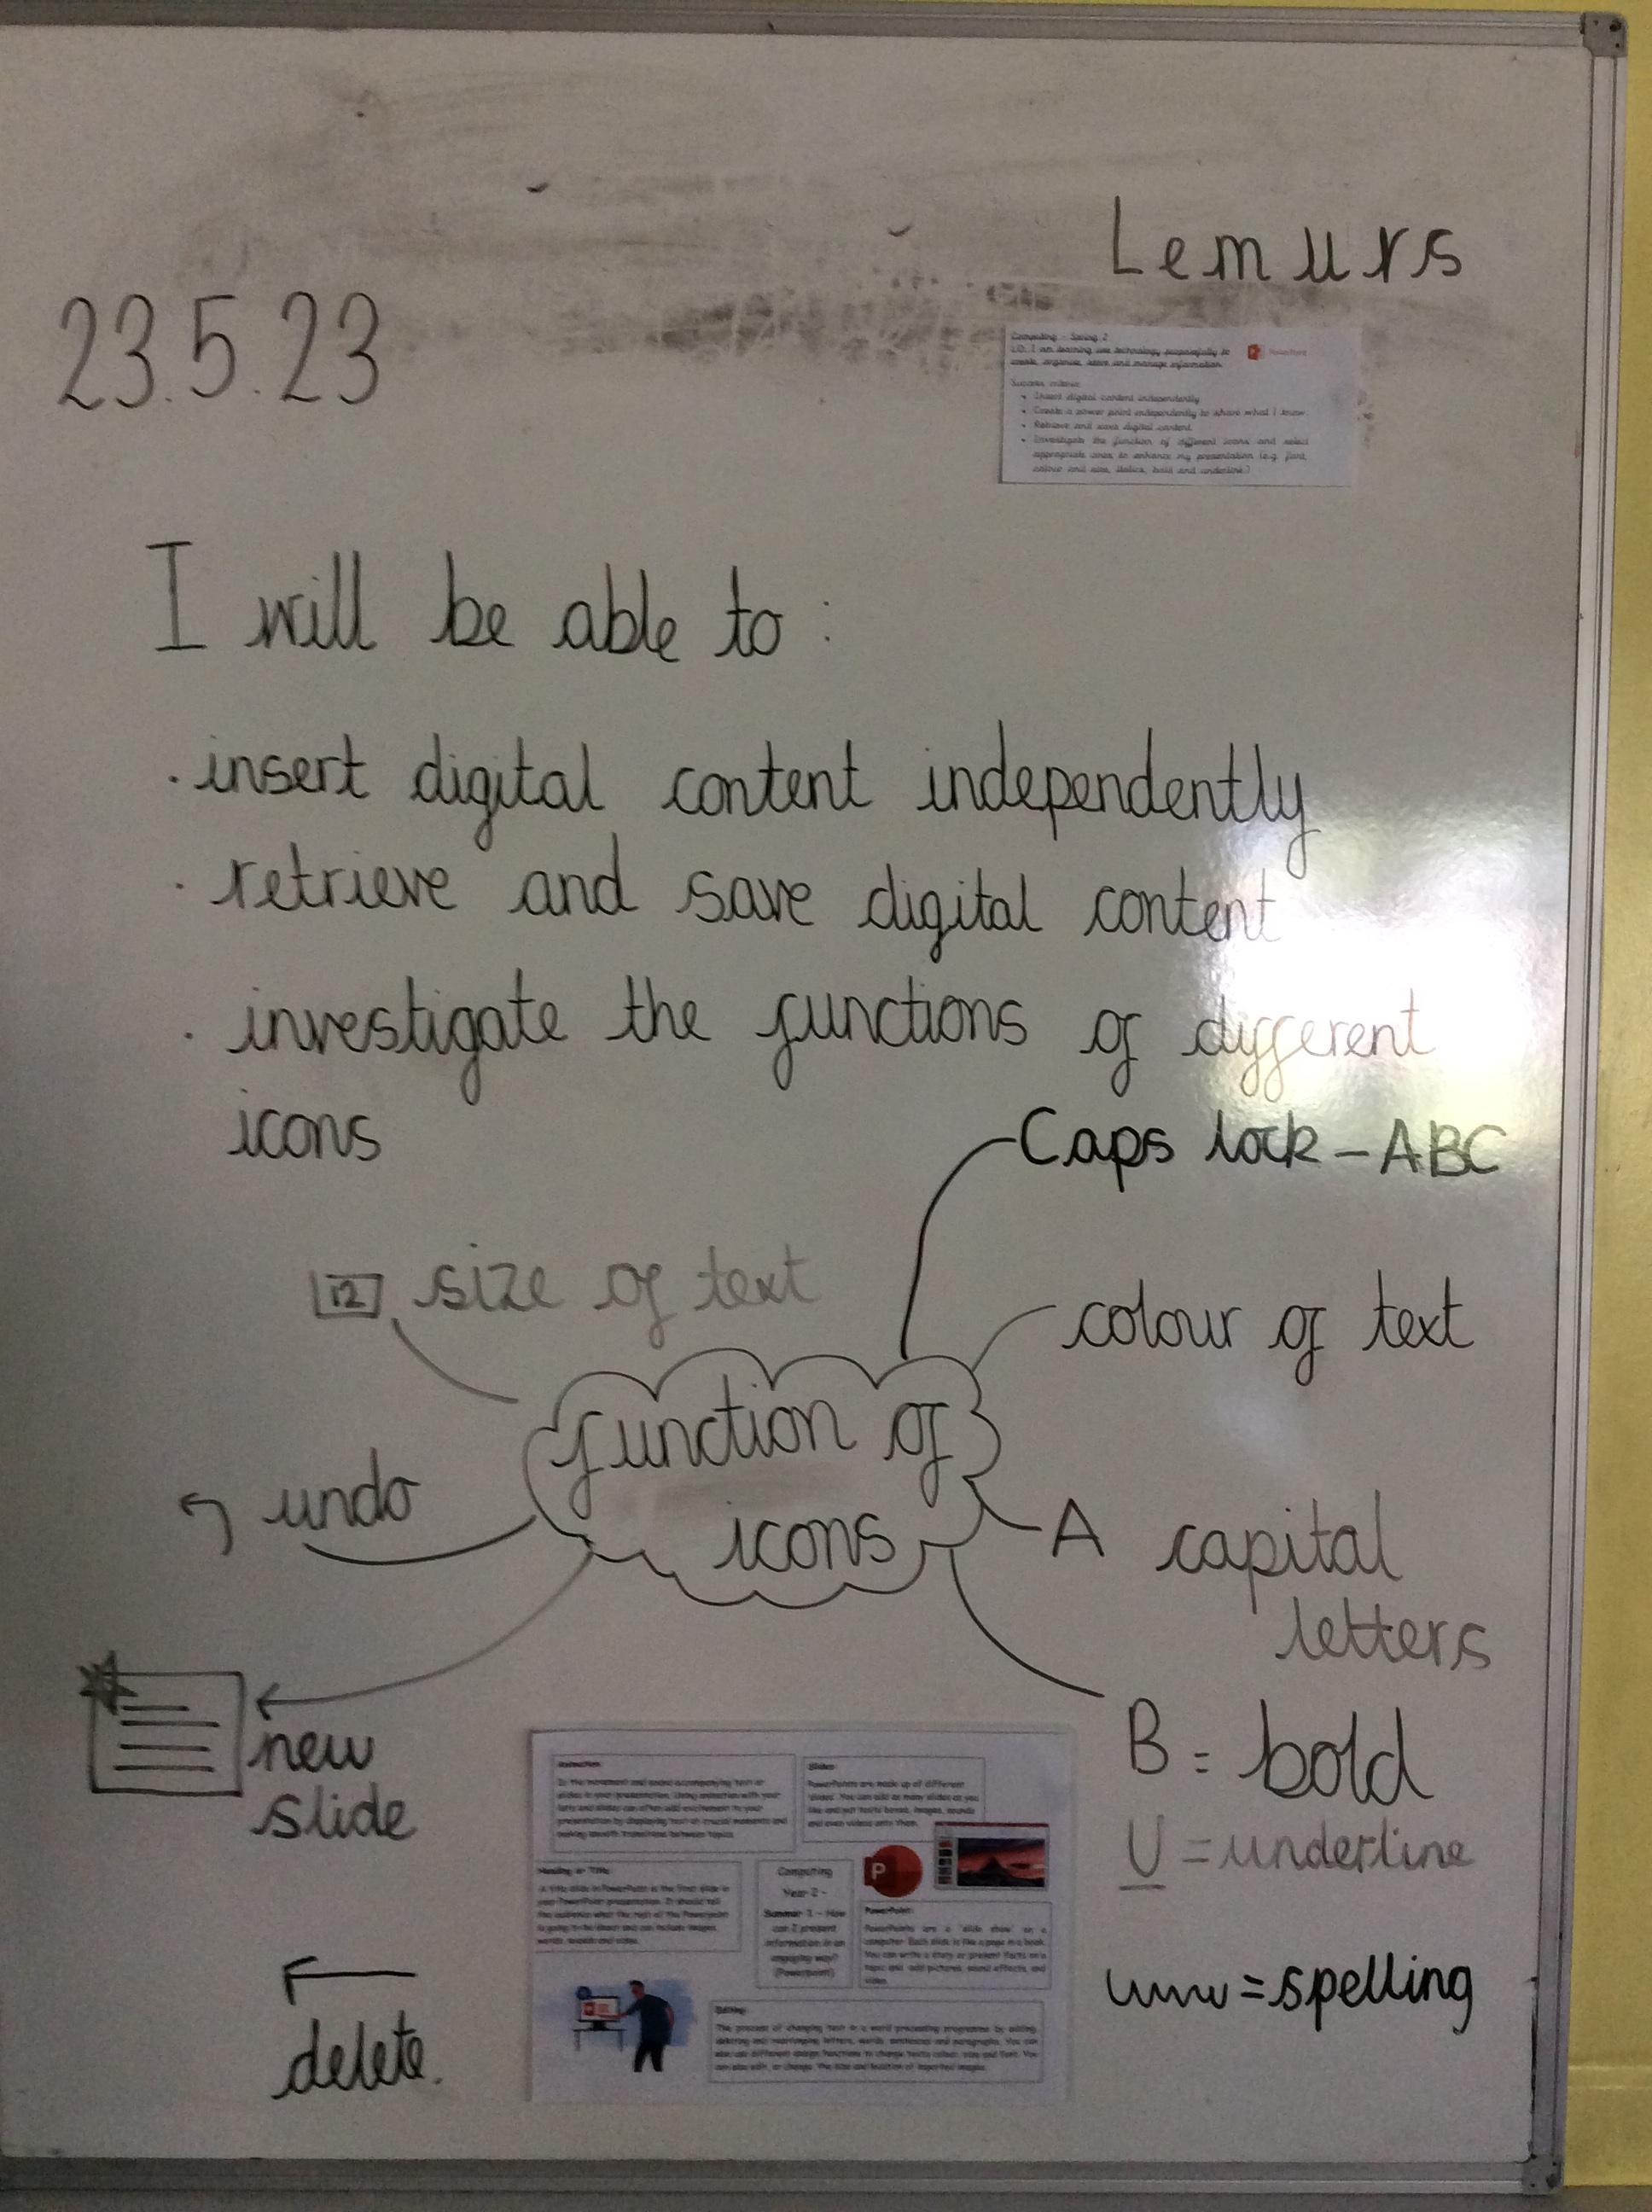 Lemurs
23.5.23
Computing - Spring 2
L.O. I am learning use technology purposefully to
create, organise, store and manage information.
PowerPoint
Success criteria:
• Insert digital content independently
• Create a power point independently to share what I know.
• Retrieve and save digital content.
• Investigate the function of different icons and select
appropriate ones to enhance my presentation (e.g. font,
colour and size, italics, bold and underline.)
I will be able to:
· insert digital content independently
· retrieve and save digital content
· investigate the functions of different
icons
Caps lock - ABC
12 size of text
colour of text
function of
icons
undo
A capital
letters
new
slide
B = bold
U = underline
= spelling
delete.
Animation:
Is the movement and sound accompanying text or
slides in your presentation. Using animation with your
text and slides can often add excitement to your
presentation by displaying text at crucial moments and
making smooth transitions between topics.
Slides:
PowerPoints are made up of different
slides. You can add as many slides as you
like and put texts boxes, images, sounds
and even videos onto them.
Heading or Title:
A title slide in PowerPoint is the first slide in
your PowerPoint presentation. It should tell
the audience what the rest of the Powerpoint
is going to be about and can include images,
words, sounds and video.
Computing
Year 2 -
Summer 1 - How
can I present
information in an
engaging way?
(Powerpoint)
P
PowerPoint:
PowerPoints are a 'slide show' on a
computer. Each slide is like a page in a book.
You can write a story or present facts on a
topic and add pictures, sound effects, and
video.
Editing:
The process of changing text in a word processing programme by adding,
deleting and rearranging letters, words, sentences and paragraphs. You can
also use different design functions to change texts colour, size and font. You
can also edit, or change, the size and location of imported images.